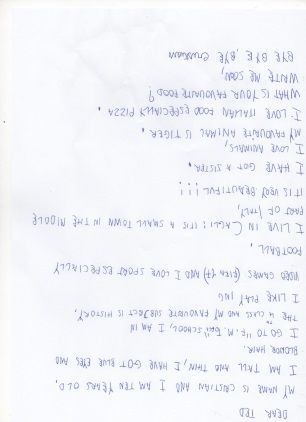 DEAR TED
MY NAME IS CRISTIAN AND I AM TEN YEARS OLD.
I AM TALL AND THIN, I HAVE GOT BLUE EYES AND
BLONDE HAIR.
I GO TO "F. M. " SCHOOL, I AM IN
THE 4 CLASS MY FAVOURITE SUBJECT IS HISTORY.
I LIKE PLAY ING
VIDEO GAMES (FIFA 17) AND I LOVE SPORT ESPECIALLY
FOOTBALL.
I LIVE IN CAGLI: IT IS A SMALL TOWN IN THE MIDDLE
PART OF ITALY,
IT IS VERY BEAUTIFUL !!!
I HAVE GOT A SISTER.
I LOVE ANIMALS,
MY FAVOURITE ANIMAL IS TIGER.
I LOVE ITALIAN FOOD ESPECIALLY PIZZA.
WHAT IS YOUR FAVOURITE FOOD?
WRITE ME SOON,
BYE BYE, BYE CRISTIAN